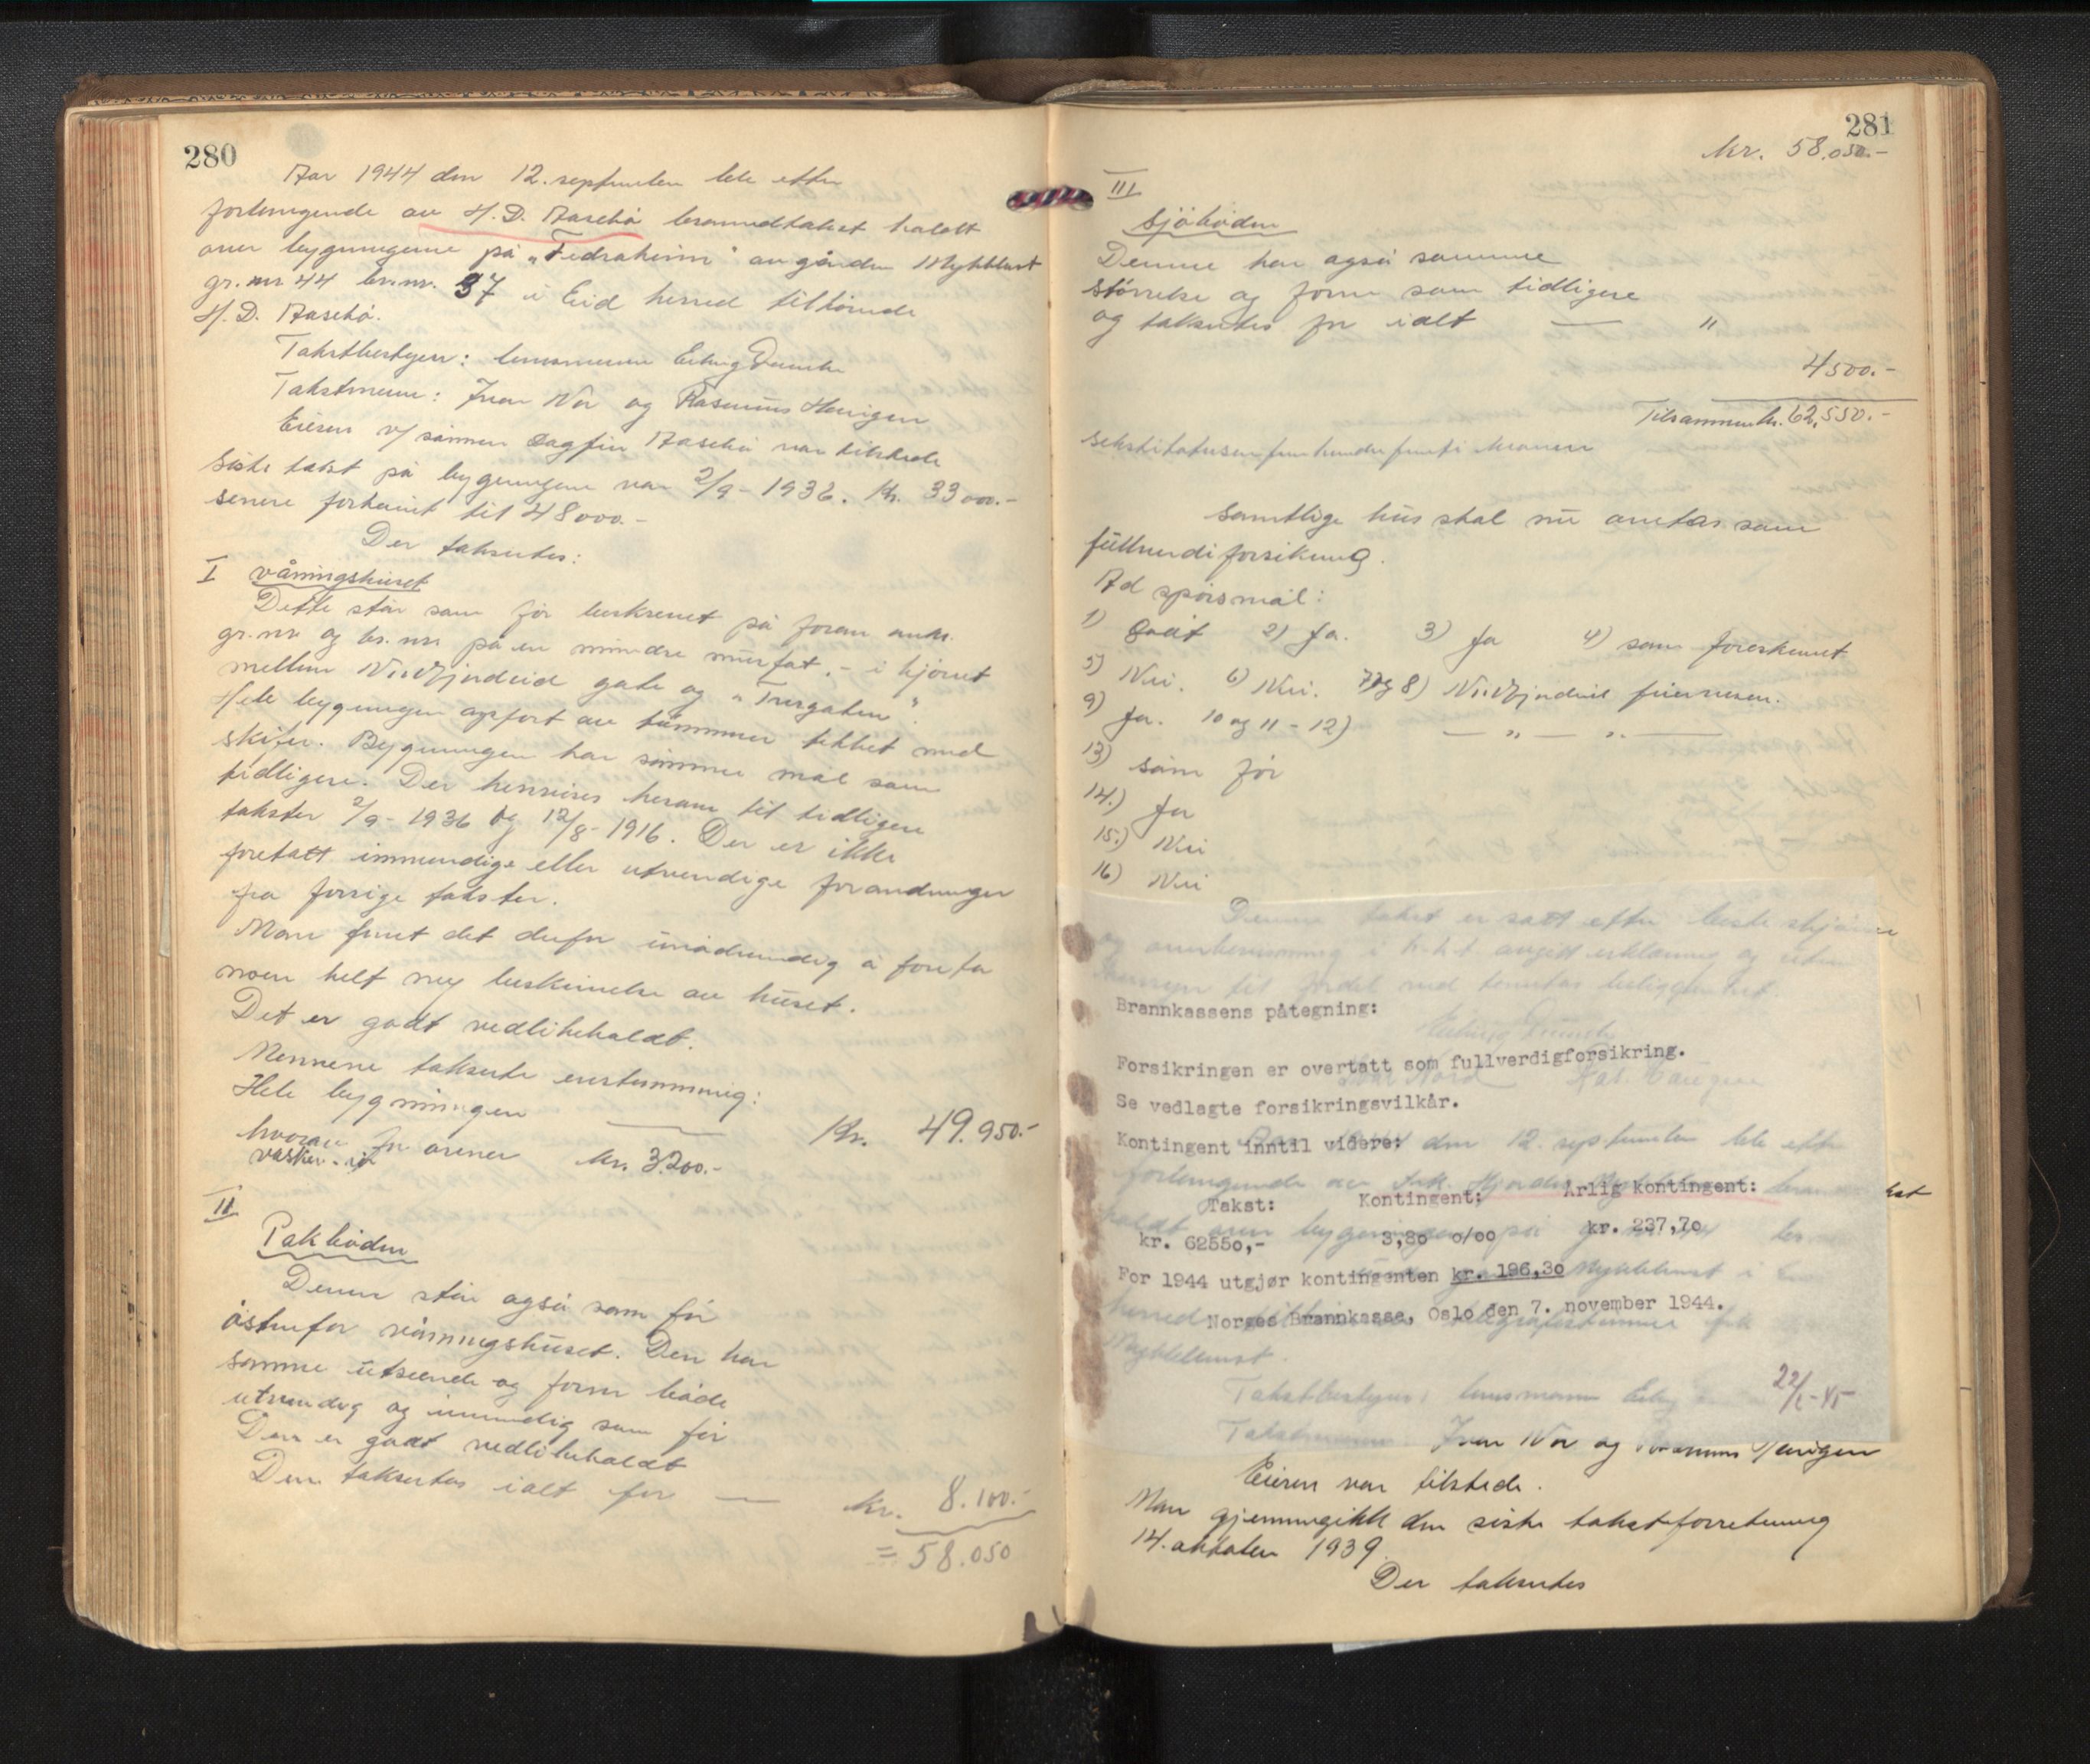 280
Aar 1944 den 12. september ble etter
forlangende av H. D. Aasebø branntakst holdt
over bygningene på „Fedraheim" av gården Myklebust
gr. nr 44 br.nr. 37 i Eid herred tilhørende
H. D. Aasebø.
Takstbestyrer: lensmann Erling
Takstmenn: Ivar Nor og Rasmus Haugen
Eieren v/ sønnen Dagfin Aasebø var tilstede
Siste takst på bygningene var 2/9 - 1936. Kr. 33000.-
senere forhøiet til 48000.-
Der takseertes:
I våningshuset
Dette står som før beskrevet på foran anh.
gr.nr. og br.nr. på en mindre murfot. - i hjørnet
mellem Nordfjordeid gate og „Tvergaten".
Hele bygningen opført av tømmer tekket med
skifer. Bygningen har samme mål som
tidligere. Der henvises herom til tidligere
takster 2/9 - 1936 og 12/8 - 1916. Der er ikke
foretatt innvendige eller utvendige forandringer
fra forrige takster.
Man fant det derfor unødvendig å foreta
noen helt ny beskrivelse av huset.
Det er godt vedlikeholdt.
Mennene takserte enstemmig:
Hele bygningen — Kr. 49.950.-
hvorav for ovner kr. 3.200.-
II
Pakboden
Denne står også som før
østenfor våningshuset. Den har
samme utseende og form både
utvendig og innvendig som før
Den er godt vedlikeholdt
Den taksertes ialt for — kr. 8.100.-
= 58.050
281
Kr. 58.050.-
III
Sjøboden
Denne har også samme
størrelse og form som tidligere
og taksertes for ialt — "
4500.-
Tilsammen kr. 62.550.-
sekstitotusenfemhundrefemti kroner
Samtlige hus skal nu ansees som
fullverdiforsikring.
Ad spørsmål:
1) Godt 2) Ja. 3) Ja 4) som foreskrevet
5) Nei. 6) Nei. 7 og 8) Nordfjordeid feiervesen.
9) Ja. 10 og 11 - 12) — " — " —
13) som før
14.) Ja
15.) Nei
16) Nei
Denne takst er satt efter beste skjønn
og overbevisning i h.h.t. avgitt erklæring og uten
hensyn til fordel ved tomtas beliggenhet.
Brannkassens påtegning:
Forsikringen er overtatt som fullverdigforsikring.
Ivar Nord Ras. Haugen
Se vedlagte forsikringsvilkår.
Kontingent inntil videre:
den 12. september ble efter
forlangende av
Takst: Kontingent: Årlig kontingent:
kr. 62550,- 3,80 o/oo kr. 237,70
For 1944 utgjør kontingenten kr. 196,30
Norges Brannkasse, Oslo den 7. november 1944.
Myklebust.
22/1-45
Takstbestyrer: lensmann Erling
Takstmenn Ivar Nor og Rasmus Haugen
Eieren var tilstede.
Man gjennemgikk den siste takstforretning
14. oktober 1939.
Der taksertes